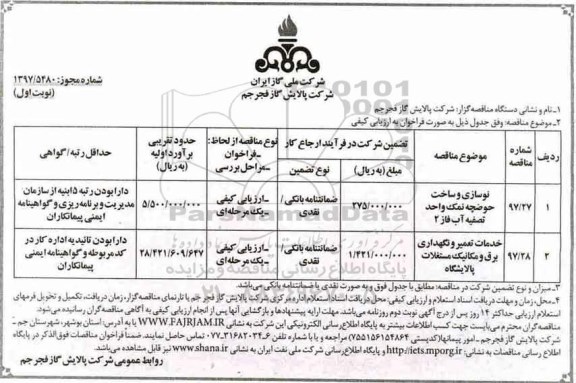 شرکت ملی گاز ایران
شرکت پالایش گاز فجر جم
شماره مجوز: ۱۳۹۷/۵۴۸۰
(نوبت اول)
۱ـ نام و نشانی دستگاه مناقصه گزار: شرکت پالایش گاز فجر جم
۲ـ موضوع مناقصه: وفق جدول ذیل به صورت فراخوان به ارزیابی کیفی
ردیف
شماره مناقصه
موضوع مناقصه
تضمین شرکت در فرآیند ارجاع کار
مبلغ (به ریال)
نوع تضمین
نوع مناقصه از لحاظ:
ـ فراخوان
ـ مراحل بررسی
حدود تقریبی
برآورد اولیه
(به ریال)
حداقل رتبه/گواهی
۱
۹۷/۲۷
نوسازی و ساخت
حوضچه نمک واحد
تصفیه آب فاز ۲
۲۷۵/۰۰۰/۰۰۰
ضمانتنامه بانکی/
نقدی
ـ ارزیابی کیفی
ـ یک مرحله‌ای
۵/۵۰۰/۰۰۰/۰۰۰
دارا بودن رتبه ۵ ابنیه از سازمان
مدیریت و برنامه ریزی و گواهینامه
ایمنی پیمانکاران
۲
۹۷/۲۸
خدمات تعمیر و نگهداری
برق و مکانیک مستغلات
پالایشگاه
۱/۴۲۱/۰۰۰/۰۰۰
ضمانتنامه بانکی/
نقدی
ـ ارزیابی کیفی
ـ یک مرحله‌ای
۲۸/۴۲۱/۶۰۹/۶۴۷
دارا بودن تائیدیه اداره کار در
کد مربوطه و گواهینامه ایمنی
پیمانکاران
۳ـ میزان و نوع تضمین شرکت در مناقصه: مطابق با جدول فوق و به صورت نقدی یا ضمانتنامه بانکی می‌باشد.
۴ـ محل، زمان و مهلت دریافت اسناد استعلام و ارزیابی کیفی: محل دریافت اسناد استعلام اداره مرکزی شرکت پالایش گاز فجر جم یا تارنمای مناقصه گزار، زمان دریافت، تکمیل و تحویل فرمهای
استعلام ارزیابی حداکثر ۱۴ روز پس از درج آگهی نوبت دوم روزنامه می‌باشد. مهلت ارایه پیشنهادها و بازگشایی آنها پس از انجام ارزیابی کیفی به آگاهی مناقصه گران رسانیده می‌شود.
مناقصه گران محترم می‌بایست جهت کسب اطلاعات بیشتر به پایگاه اطلاع رسانی الکترونیکی این شرکت به نشانی WWW.FAJRJAM.IR یا به آدرس: استان بوشهر، شهرستان جم ـ
شرکت پالایش گاز فجر جم ـ امور پیمانها (کدپستی ۷۵۵۱۵۶۱۵۴۸۶۴) مراجعه و یا با شماره تلفن ۶-۰۷۷۳۱۶۸۲۰۳۴ تماس حاصل نمایند. ضمنا فراخوان مناقصات فوق الذکر در پایگاه
اطلاع رسانی مناقصات به نشانی: http://iets.mporg.ir و پایگاه اطلاع رسانی شرکت ملی نفت ایران به نشانی www.shana.ir نیز قابل مشاهده می‌باشد.
روابط عمومی شرکت پالایش گاز فجر جم